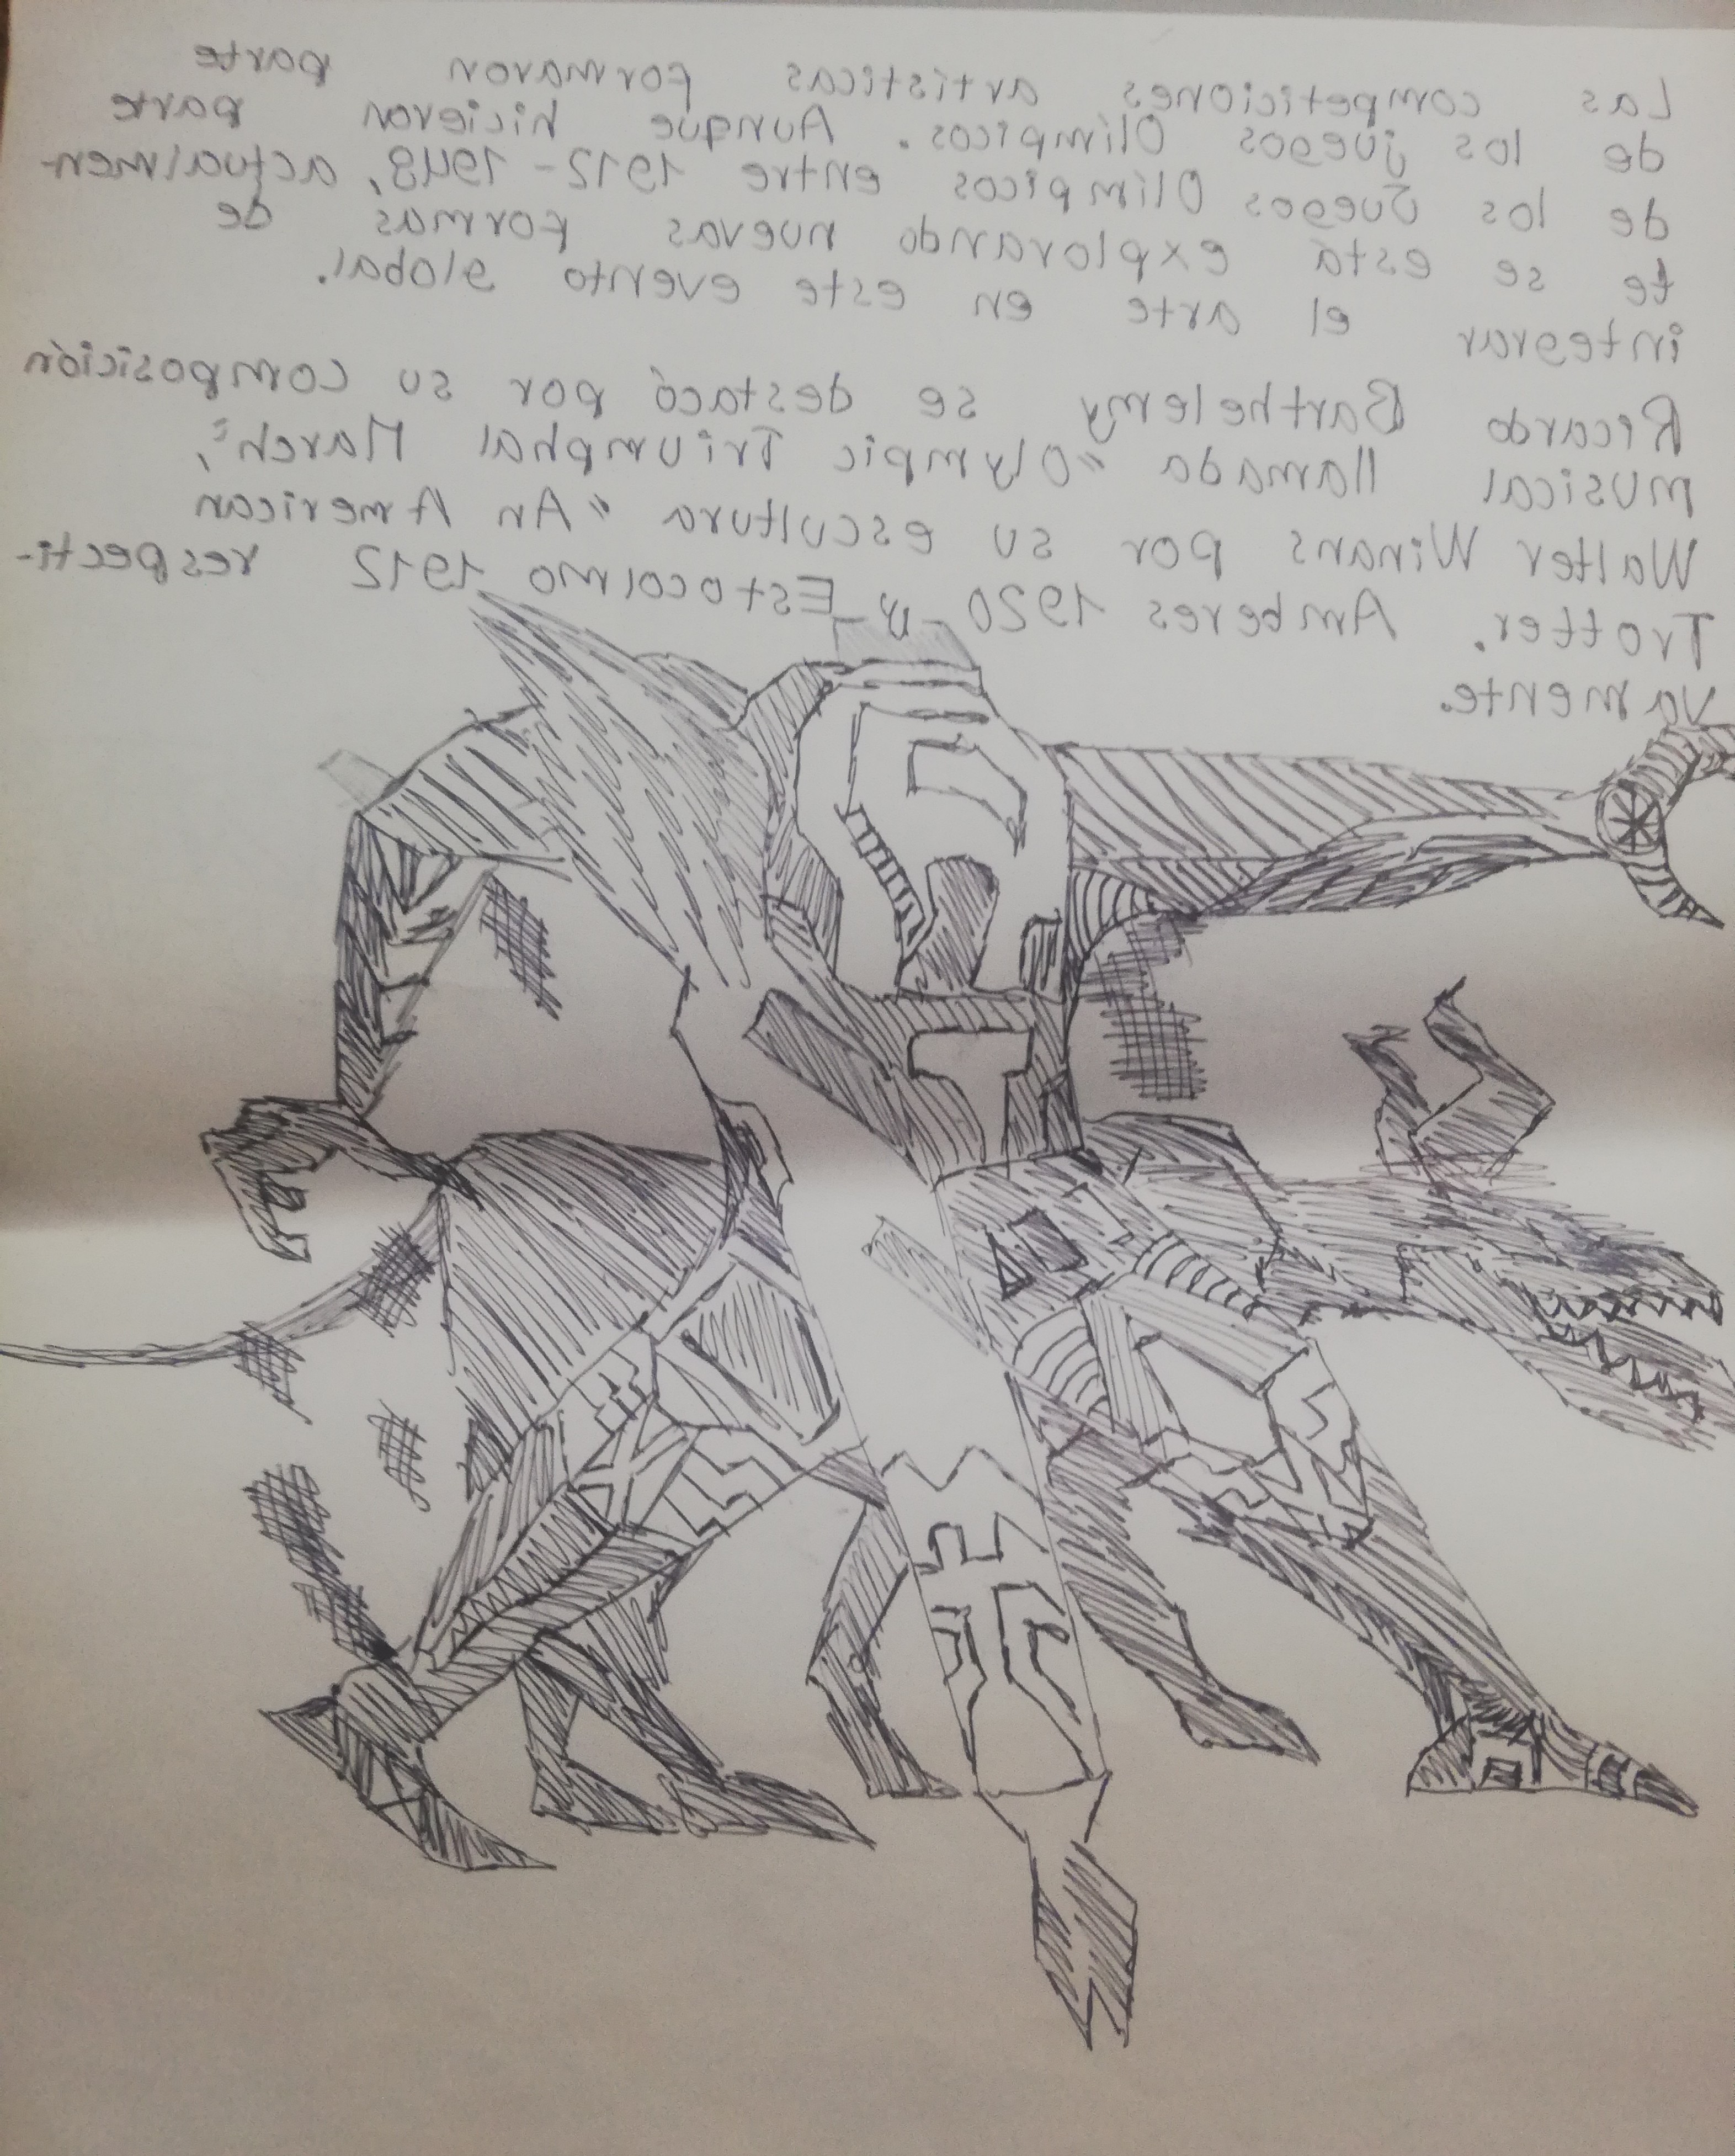 Las competiciones artísticas formaron parte
de los juegos Olímpicos. Aunque hicieron parte
de los Juegos Olímpicos entre 1912-1948, actualmen-
te se está explorando nuevas formas de
integrar el arte en este evento global.
Ricardo Barthelemy se destacó por su composición
musical llamada "Olympic Triumphal March",
Walter Winans por su escultura "An American
Trotter. Amberes 1920 y Estocolmo 1912 respecti-
vamente.